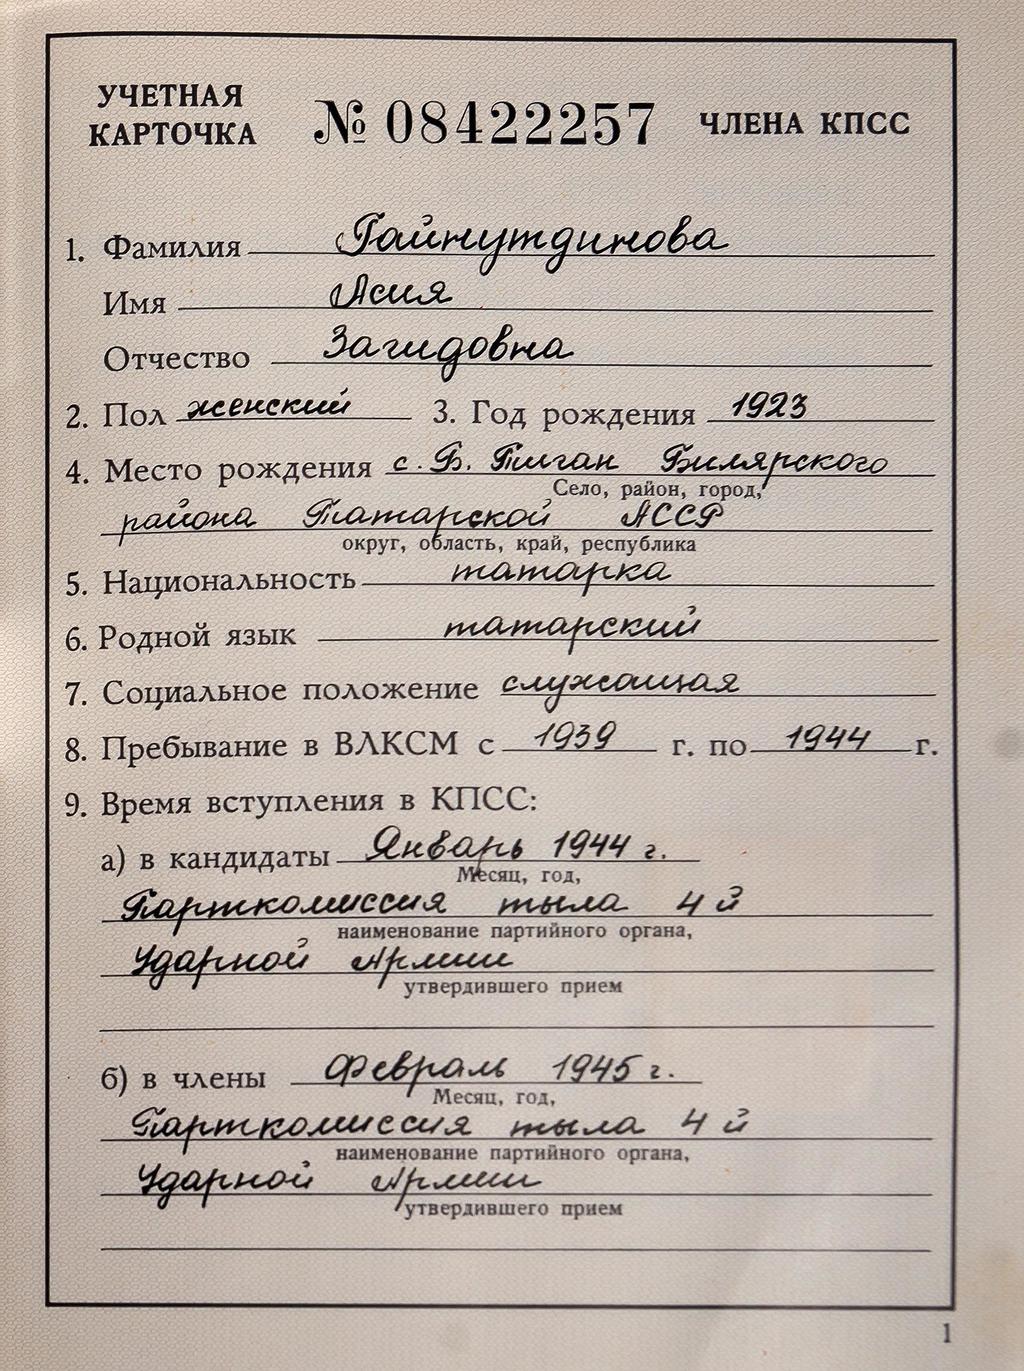 УЧЕТНАЯ КАРТОЧКА № 08422257 ЧЛЕНА КПСС
1. Фамилия Гайнутдинова
Имя Асия
Отчество Загидовна
2. Пол женский 3. Год рождения 1923
4. Место рождения с. Б. Тиган Билярского
Село, район, город,
района Татарской АССР
округ, область, край, республика
5. Национальность татарка
6. Родной язык татарский
7. Социальное положение служащая
8. Пребывание в ВЛКСМ с 1939 г. по 1944 г.
9. Время вступления в КПСС:
а) в кандидаты Январь 1944 г.
Месяц, год,
Парткомиссия тыла 4 й
наименование партийного органа,
Ударной Армии
утвердившего прием
б) в члены Февраль 1945 г.
Месяц, год,
Парткомиссия тыла 4 й
наименование партийного органа,
Ударной Армии
утвердившего прием
1